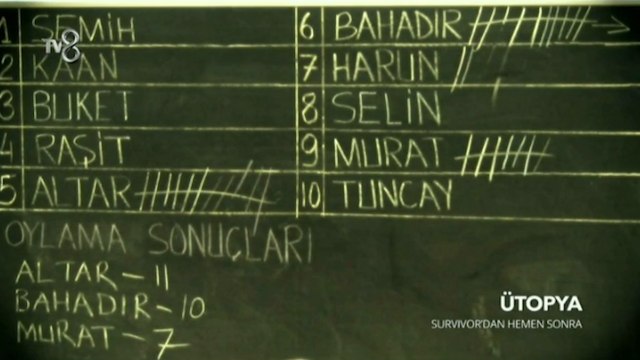 1 SEMİH
2 KAAN
3 BUKET
4 RAŞİT
5 ALTAR
6 BAHADIR
7 HARUN
8 SELİN
9 MURAT
10 TUNCAY
OYLAMA SONUÇLARI
ALTAR - 11
BAHADIR - 10
MURAT - 7
TV8
ÜTOPYA
SURVIVOR'DAN HEMEN SONRA